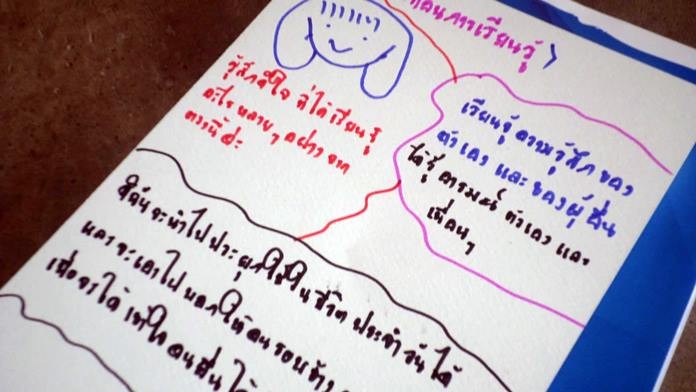 การเรียนรู้
รู้สึกดีใจ ที่ได้เรียนรู้
อะไรหลายๆ อย่างจาก
ตรงนี้ค่ะ
เรียนรู้ความรู้สึกของ
ตัวเอง และของผู้อื่น
ได้รู้อารมณ์ ตัวเอง และ
เพื่อนๆ
ดิฉันจะนำไปประยุกต์ใช้ในชีวิตประจำวันได้
และจะเอาไปบอกให้คนรอบข้าง
เพื่อจะได้เข้าใจคนอื่นได้